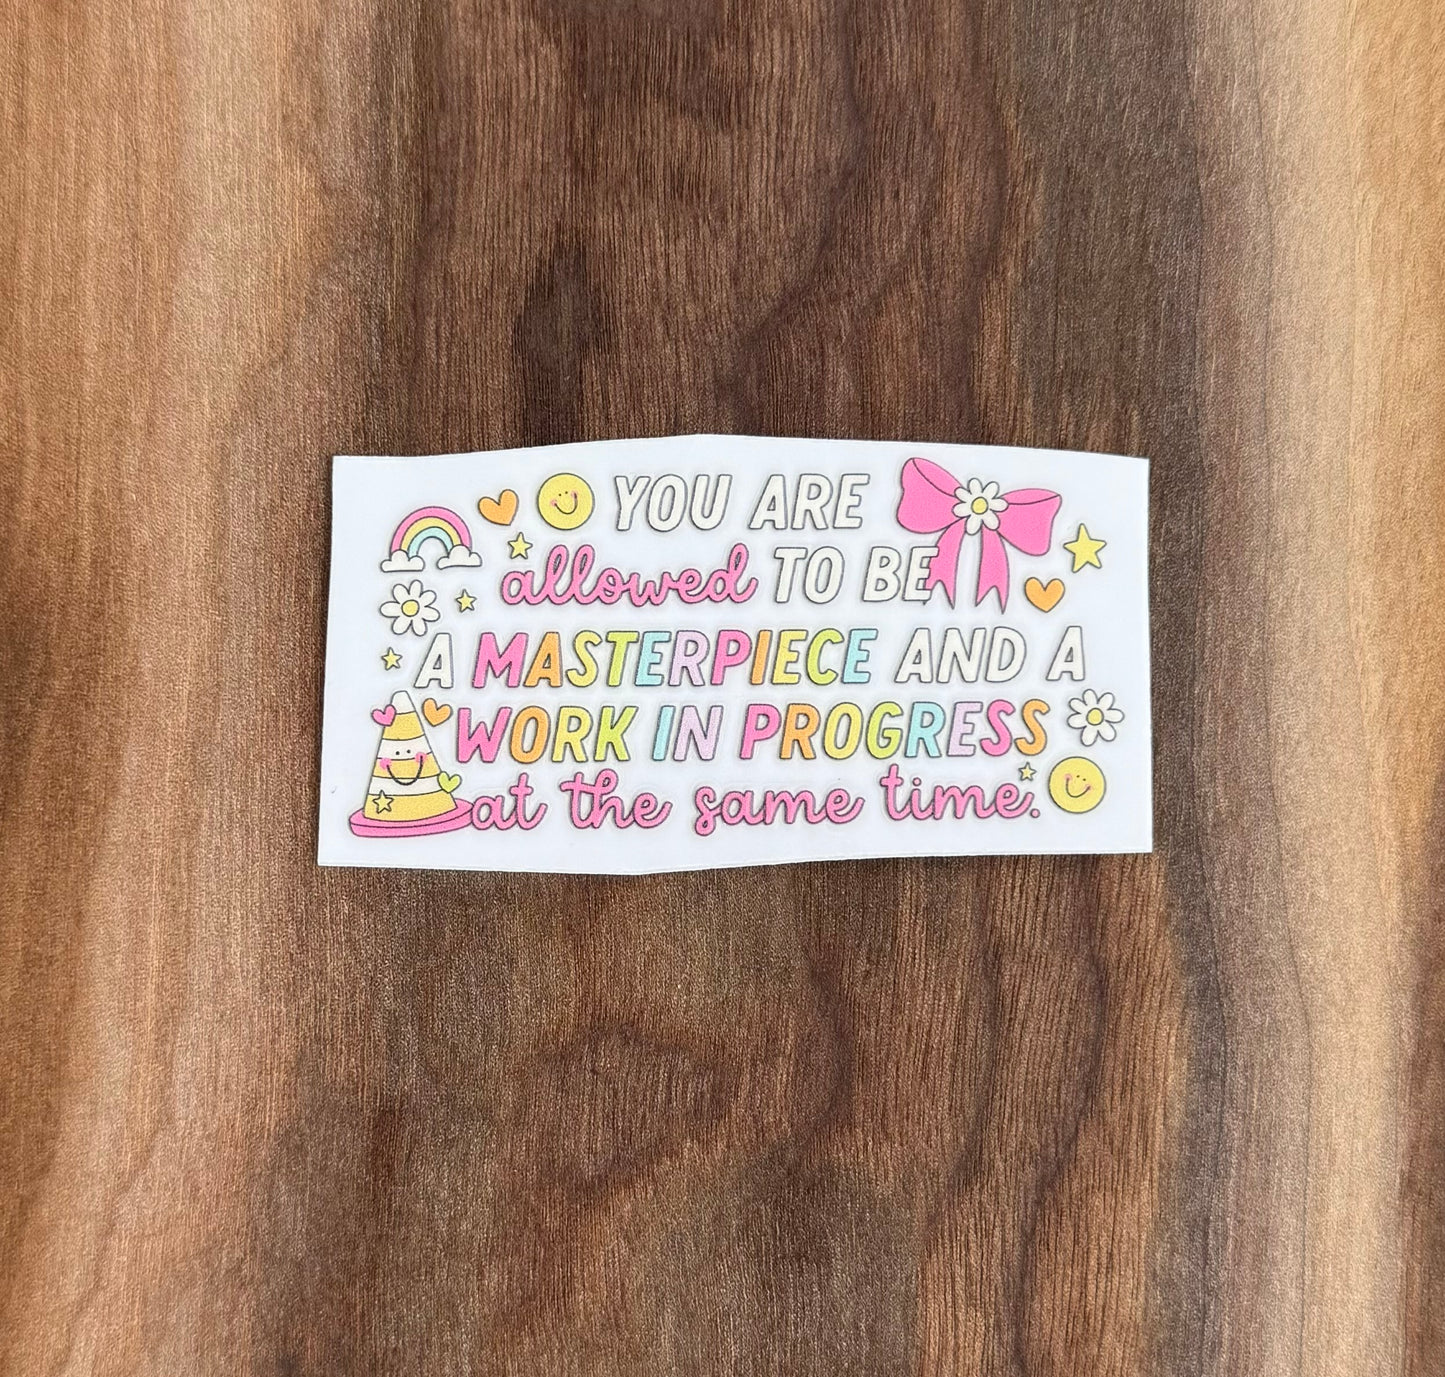 YOU ARE
allowed TO BE
A MASTERPIECE AND A
WORK IN PROGRESS
at the same time.